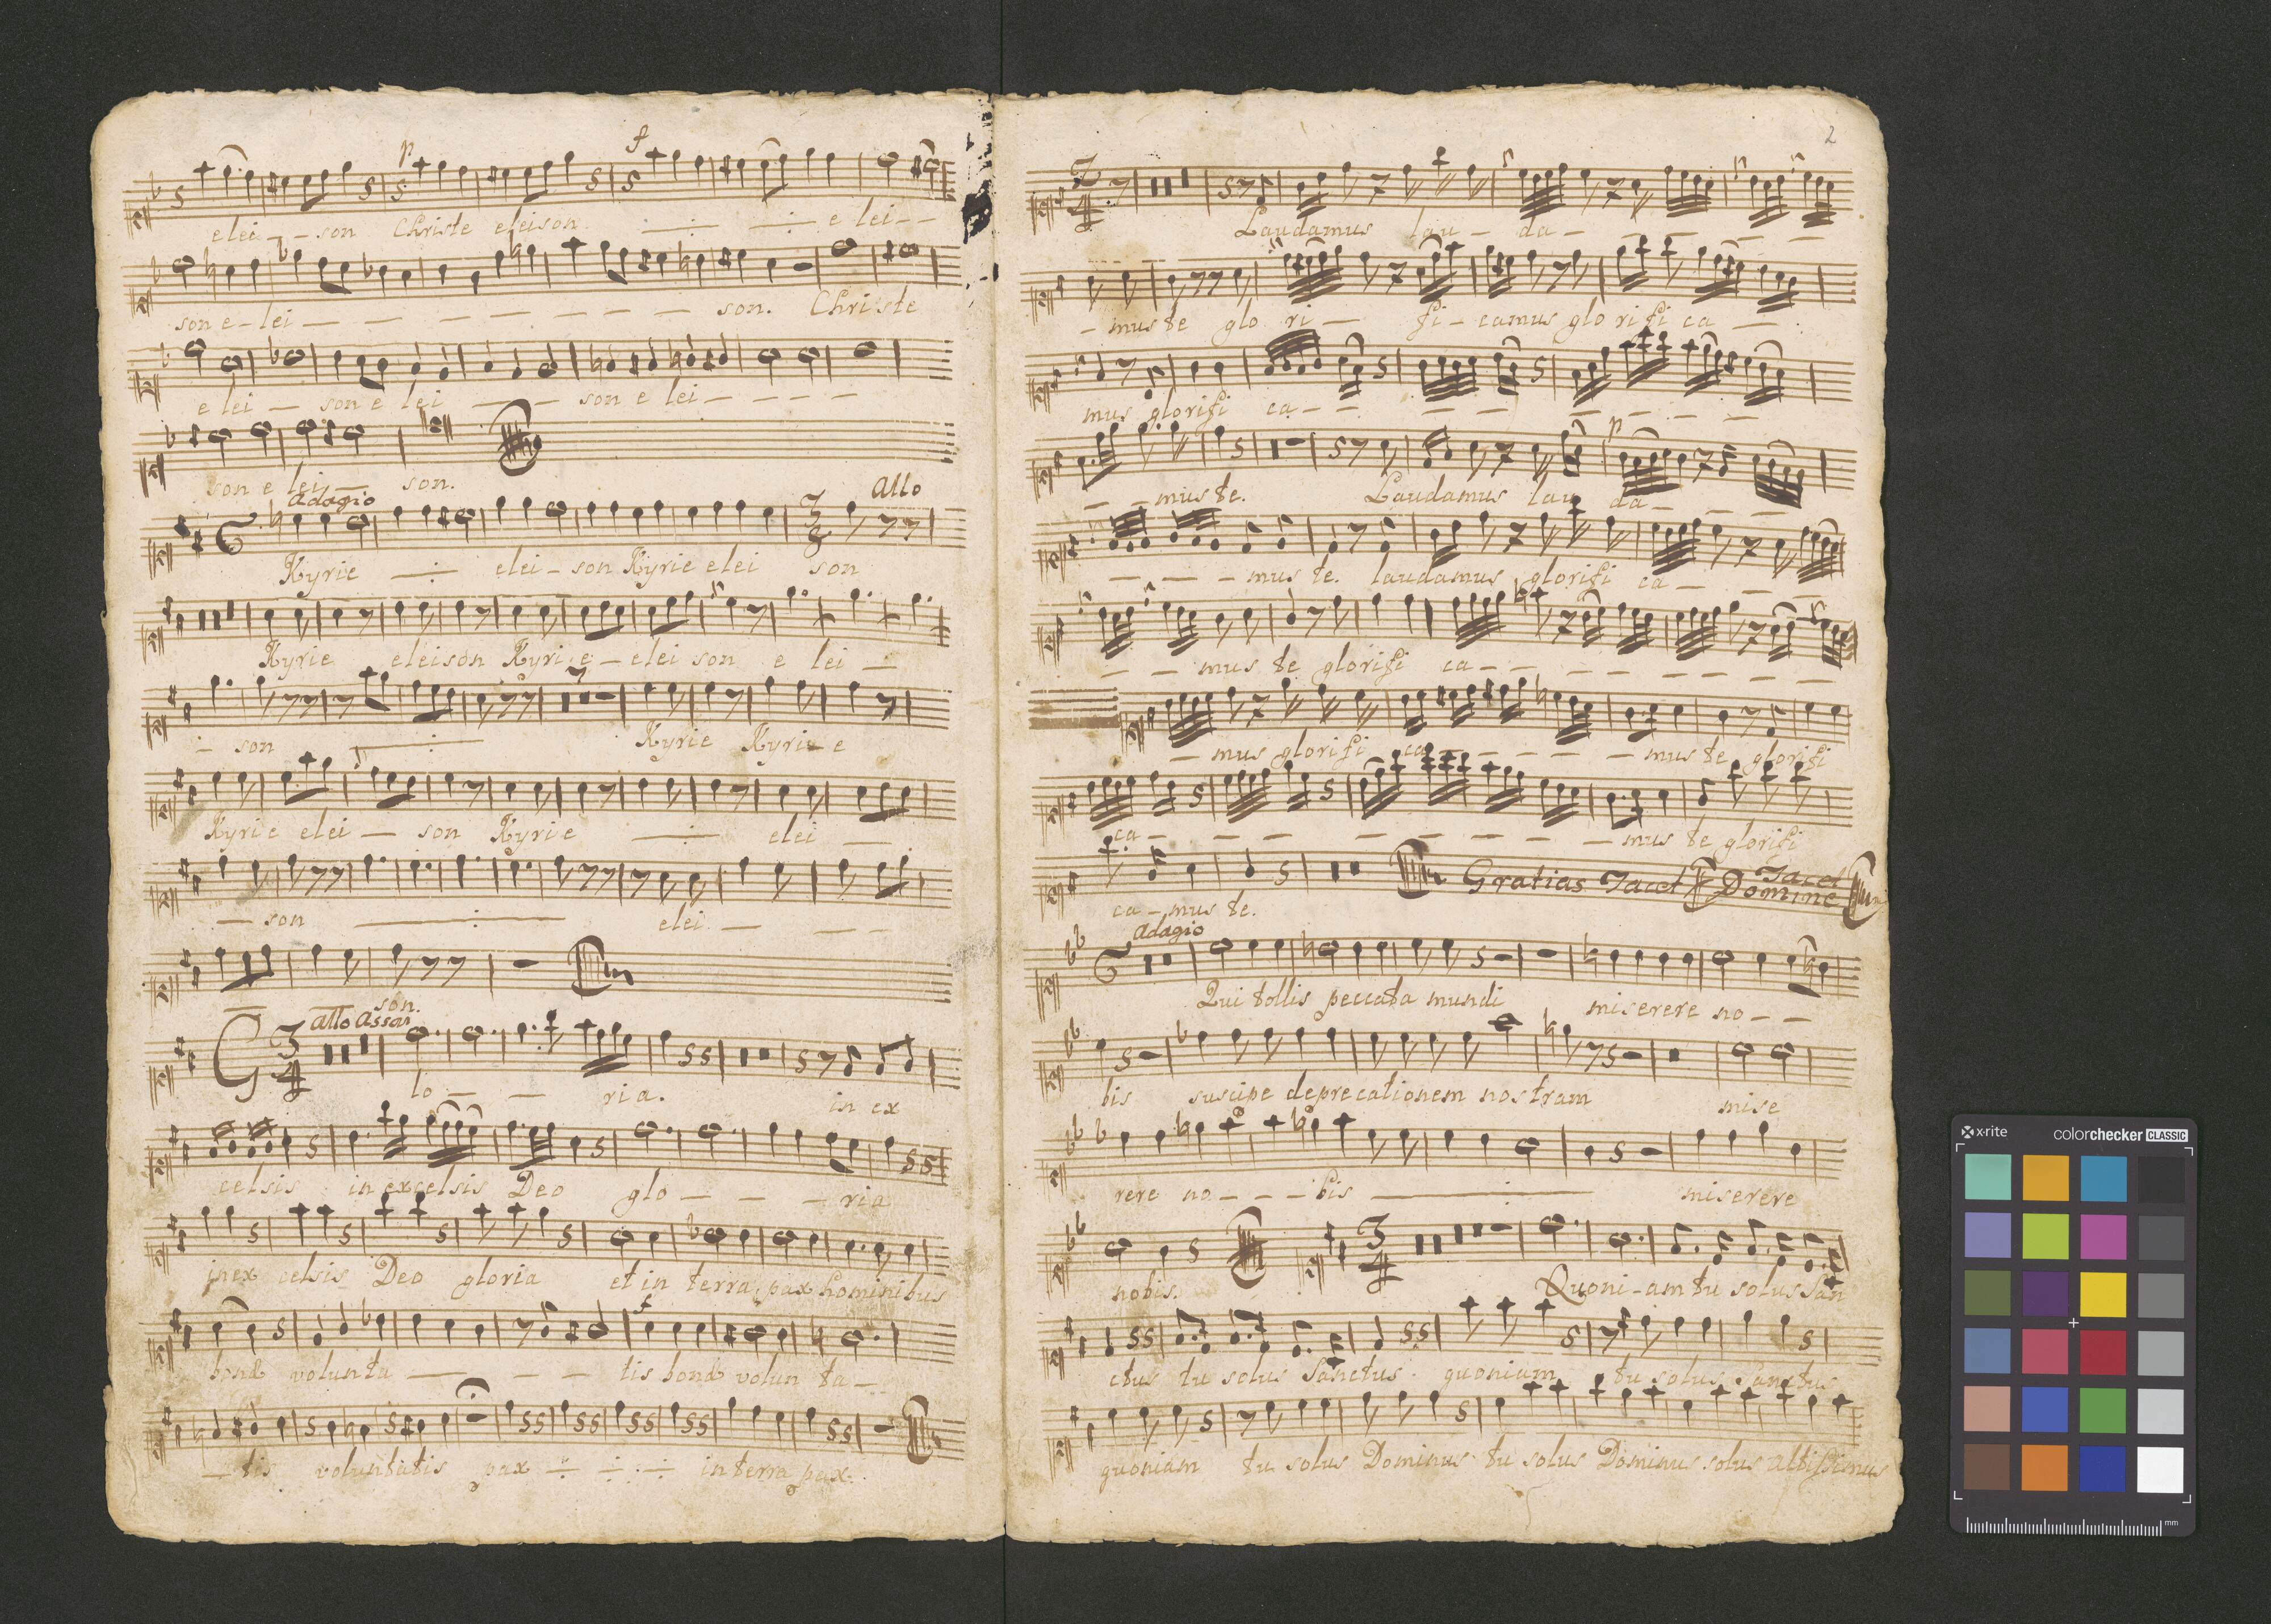 p f
elei - - son Christe eleison e lei - -
son e - lei - - - - - - - son. Christe
e lei - son e lei - - - son e lei - - - -
son e lei - son.
Adagio
allo
Kyrie elei - son Kyrie elei son
Kyrie eleison Kyri e - elei son e lei -
- son Kyrie Kyrie e
Kyrie elei - son Kyrie elei -
- son elei - - -
- son.
allo assai
G 3/4
lo - - ria. in ex
celsis in excelsis Deo glo - - - ria
in ex celsis Deo gloria et in terra pax hominibus
f
bonæ volunta - - - tis bonæ volun ta -
- tis voluntatis pax in terra pax.
2
3/4
Laudamus lau - da - - - - -
- mus te glo ri - fi - camus glo rifi ca -
mus glorifi ca - - - - - - - -
p
- - mus te. Laudamus lau da - - - -
- - - mus te. laudamus glorifi ca - - - -
- - mus te glorifi ca - - - - - - - -
- mus glorifi ca - - - - - mus te glorifi
ca - - - - - - - - mus te glorifi
Gratias Tacet Domine Tacet
ca - mus te.
Adagio
Qui tollis peccata mundi miserere no - -
bis suscipe deprecationem nostram mise
rere no - - - bis miserere
3/4
nobis. Quoni - am tu solus San
ctus tu solus Sanctus. quoniam tu solus Sanctus
quoniam tu solus Dominus tu solus Dominus solus altissimus
x-rite colorchecker CLASSIC
mm